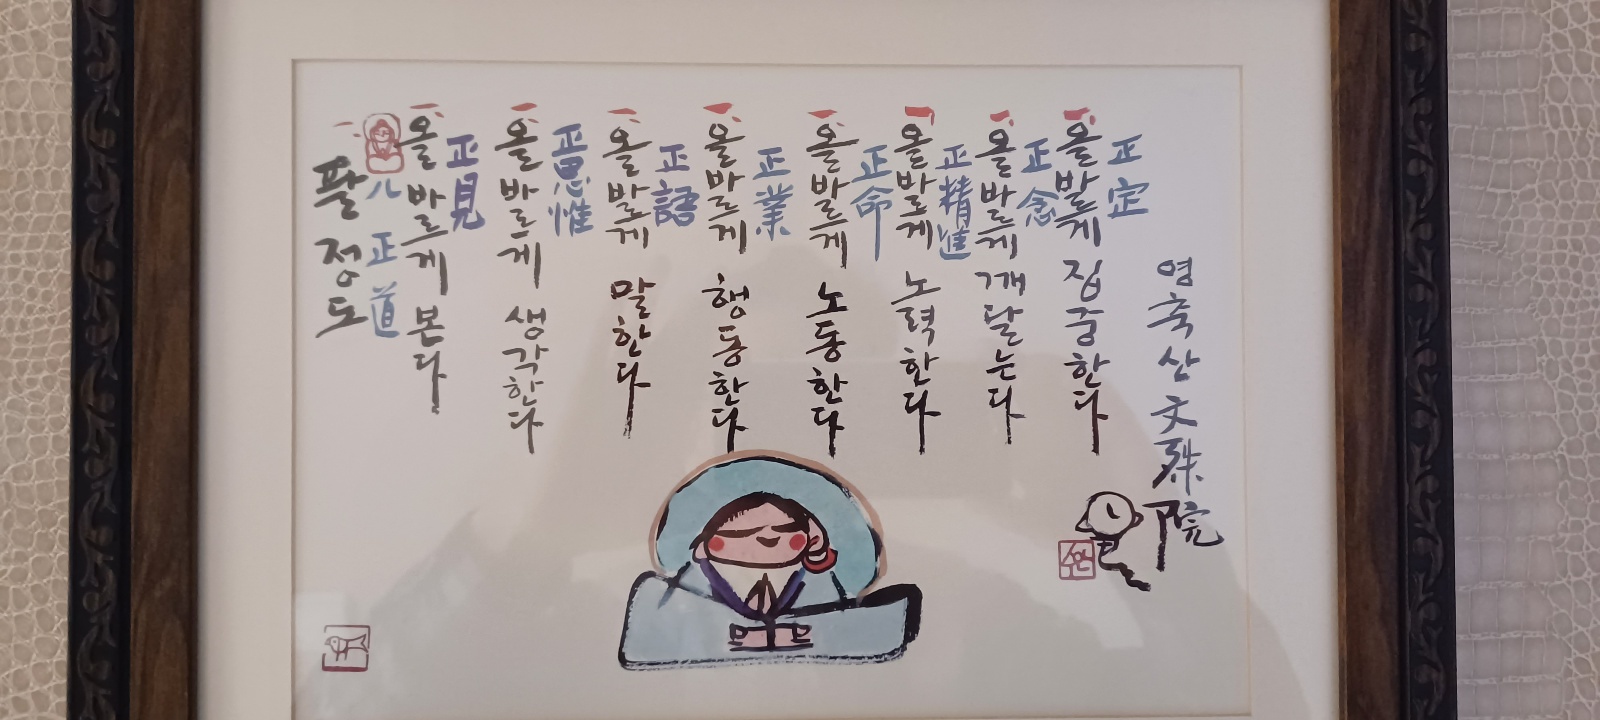 팔정도
八正道
올바르게 본다
正見
올바르게 생각한다
正思惟
올바르게 말한다
正語
올바르게 행동한다
正業
올바르게 노동한다
正命
올바르게 노력한다
正精進
올바르게 깨달는다
正念
올바르게 집중한다
正定
영축산文殊院